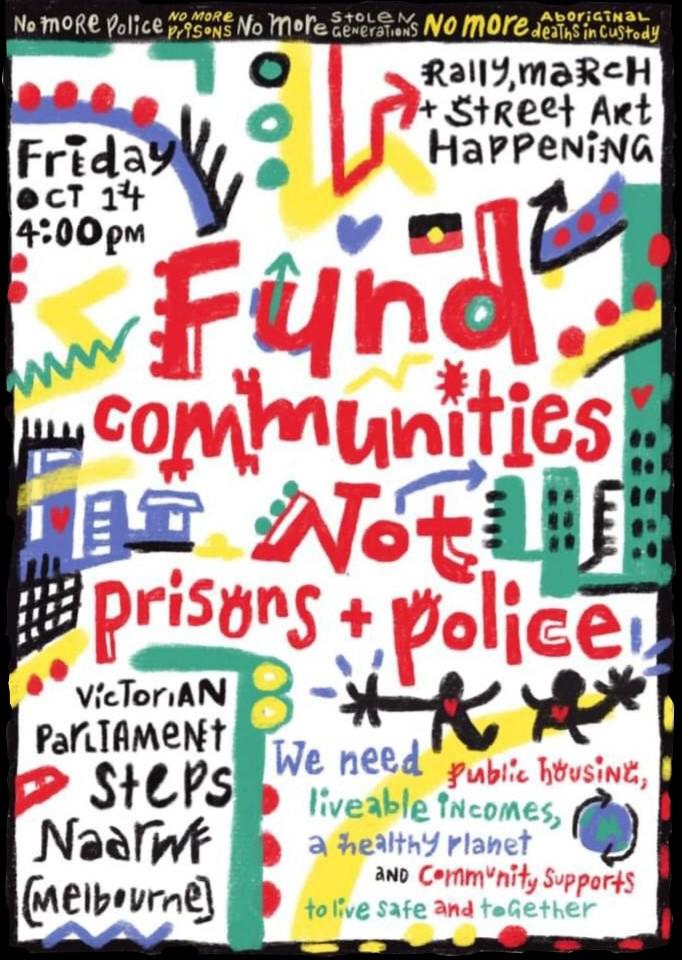 No more Police No more prisons No More Stolen Generations No more Aboriginal deaths in custody
Rally, march
+ Street Art
Happening
Friday
Oct 14
4:00pm
Fund
communities
Not
prisons + police
Victorian
Parliament
Steps
Naarm
[Melbourne]
We need public housing,
liveable incomes,
a healthy planet
and community supports
to live safe and together